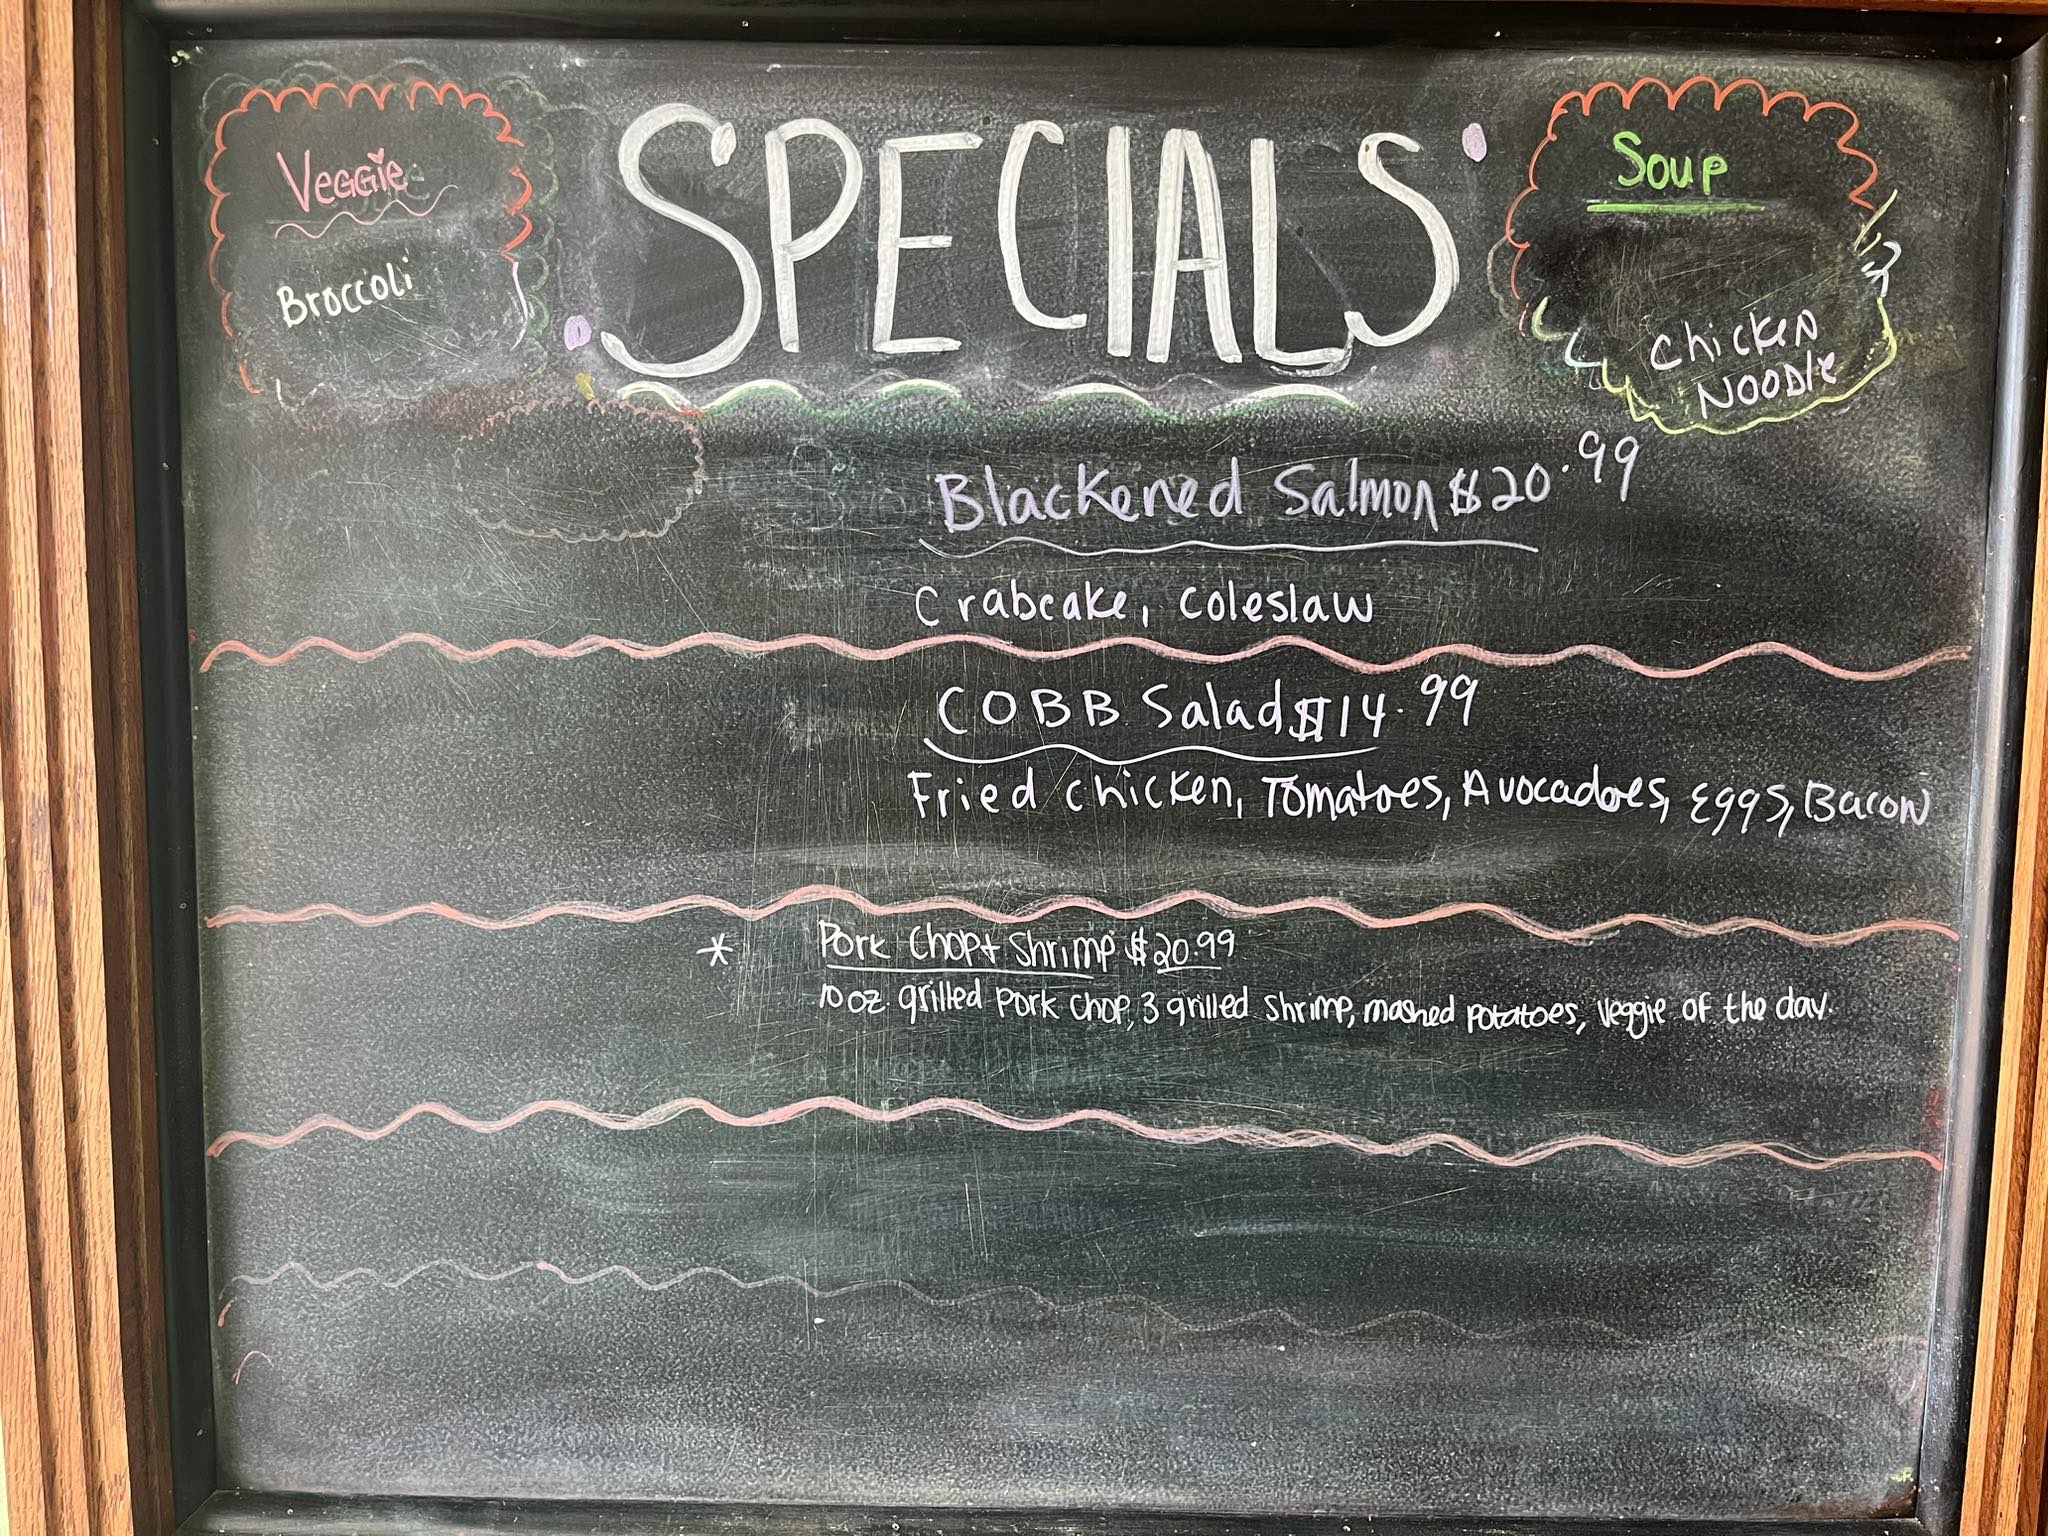 Veggie
Broccoli
SPECIALS
Soup
Chicken
Noodle
Blackened Salmon $20.99
Crabcake, Coleslaw
COBB Salad $14.99
Fried Chicken, Tomatoes, Avocadoes, Eggs, Bacon
* Pork Chop + Shrimp $20.99
10 oz. grilled Pork Chop, 3 grilled Shrimp, mashed potatoes, Veggie of the day.